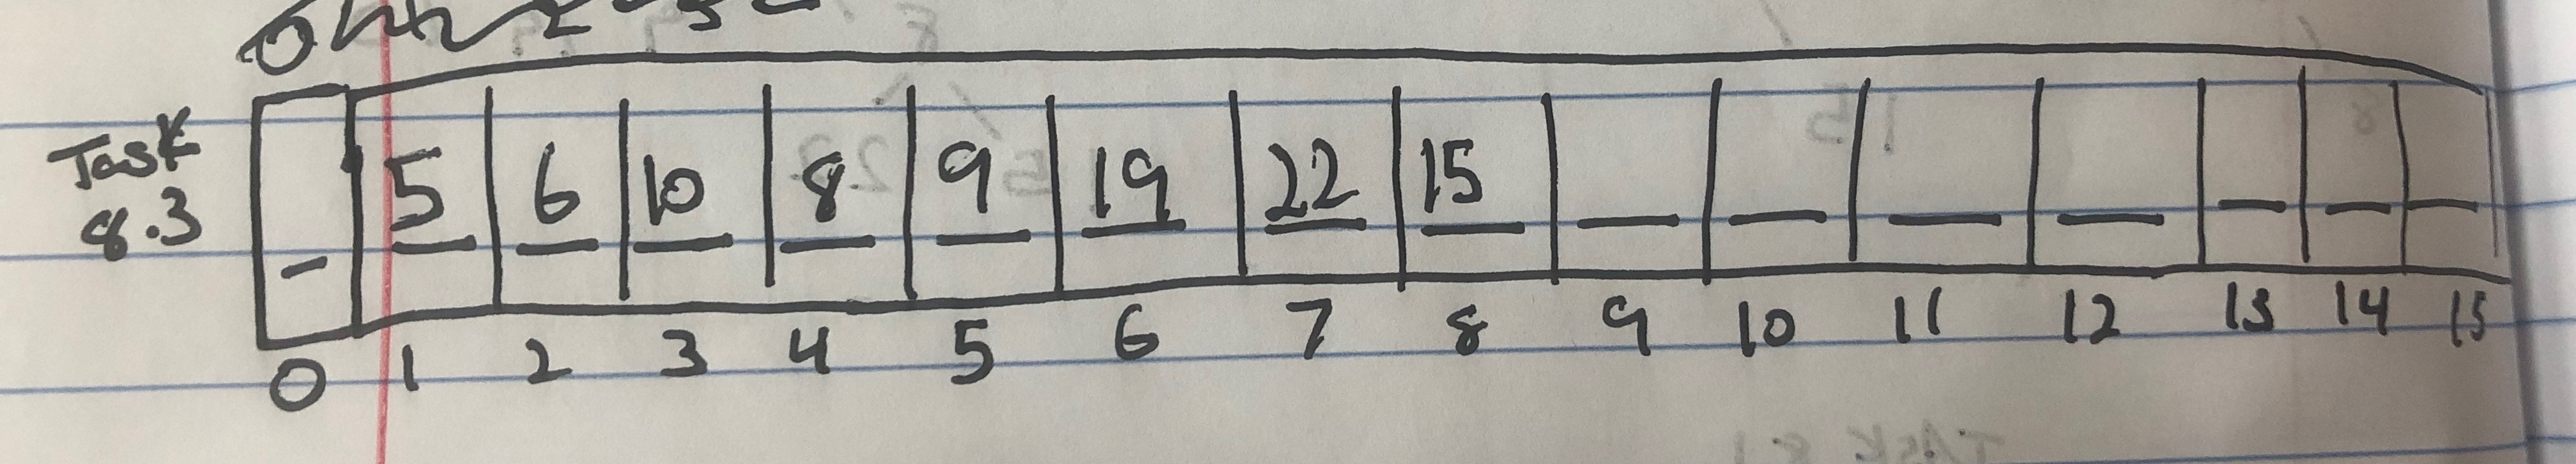 Task
8.3
5 6 10 8 9 19 22 15
0 1 2 3 4 5 6 7 8 9 10 11 12 13 14 15